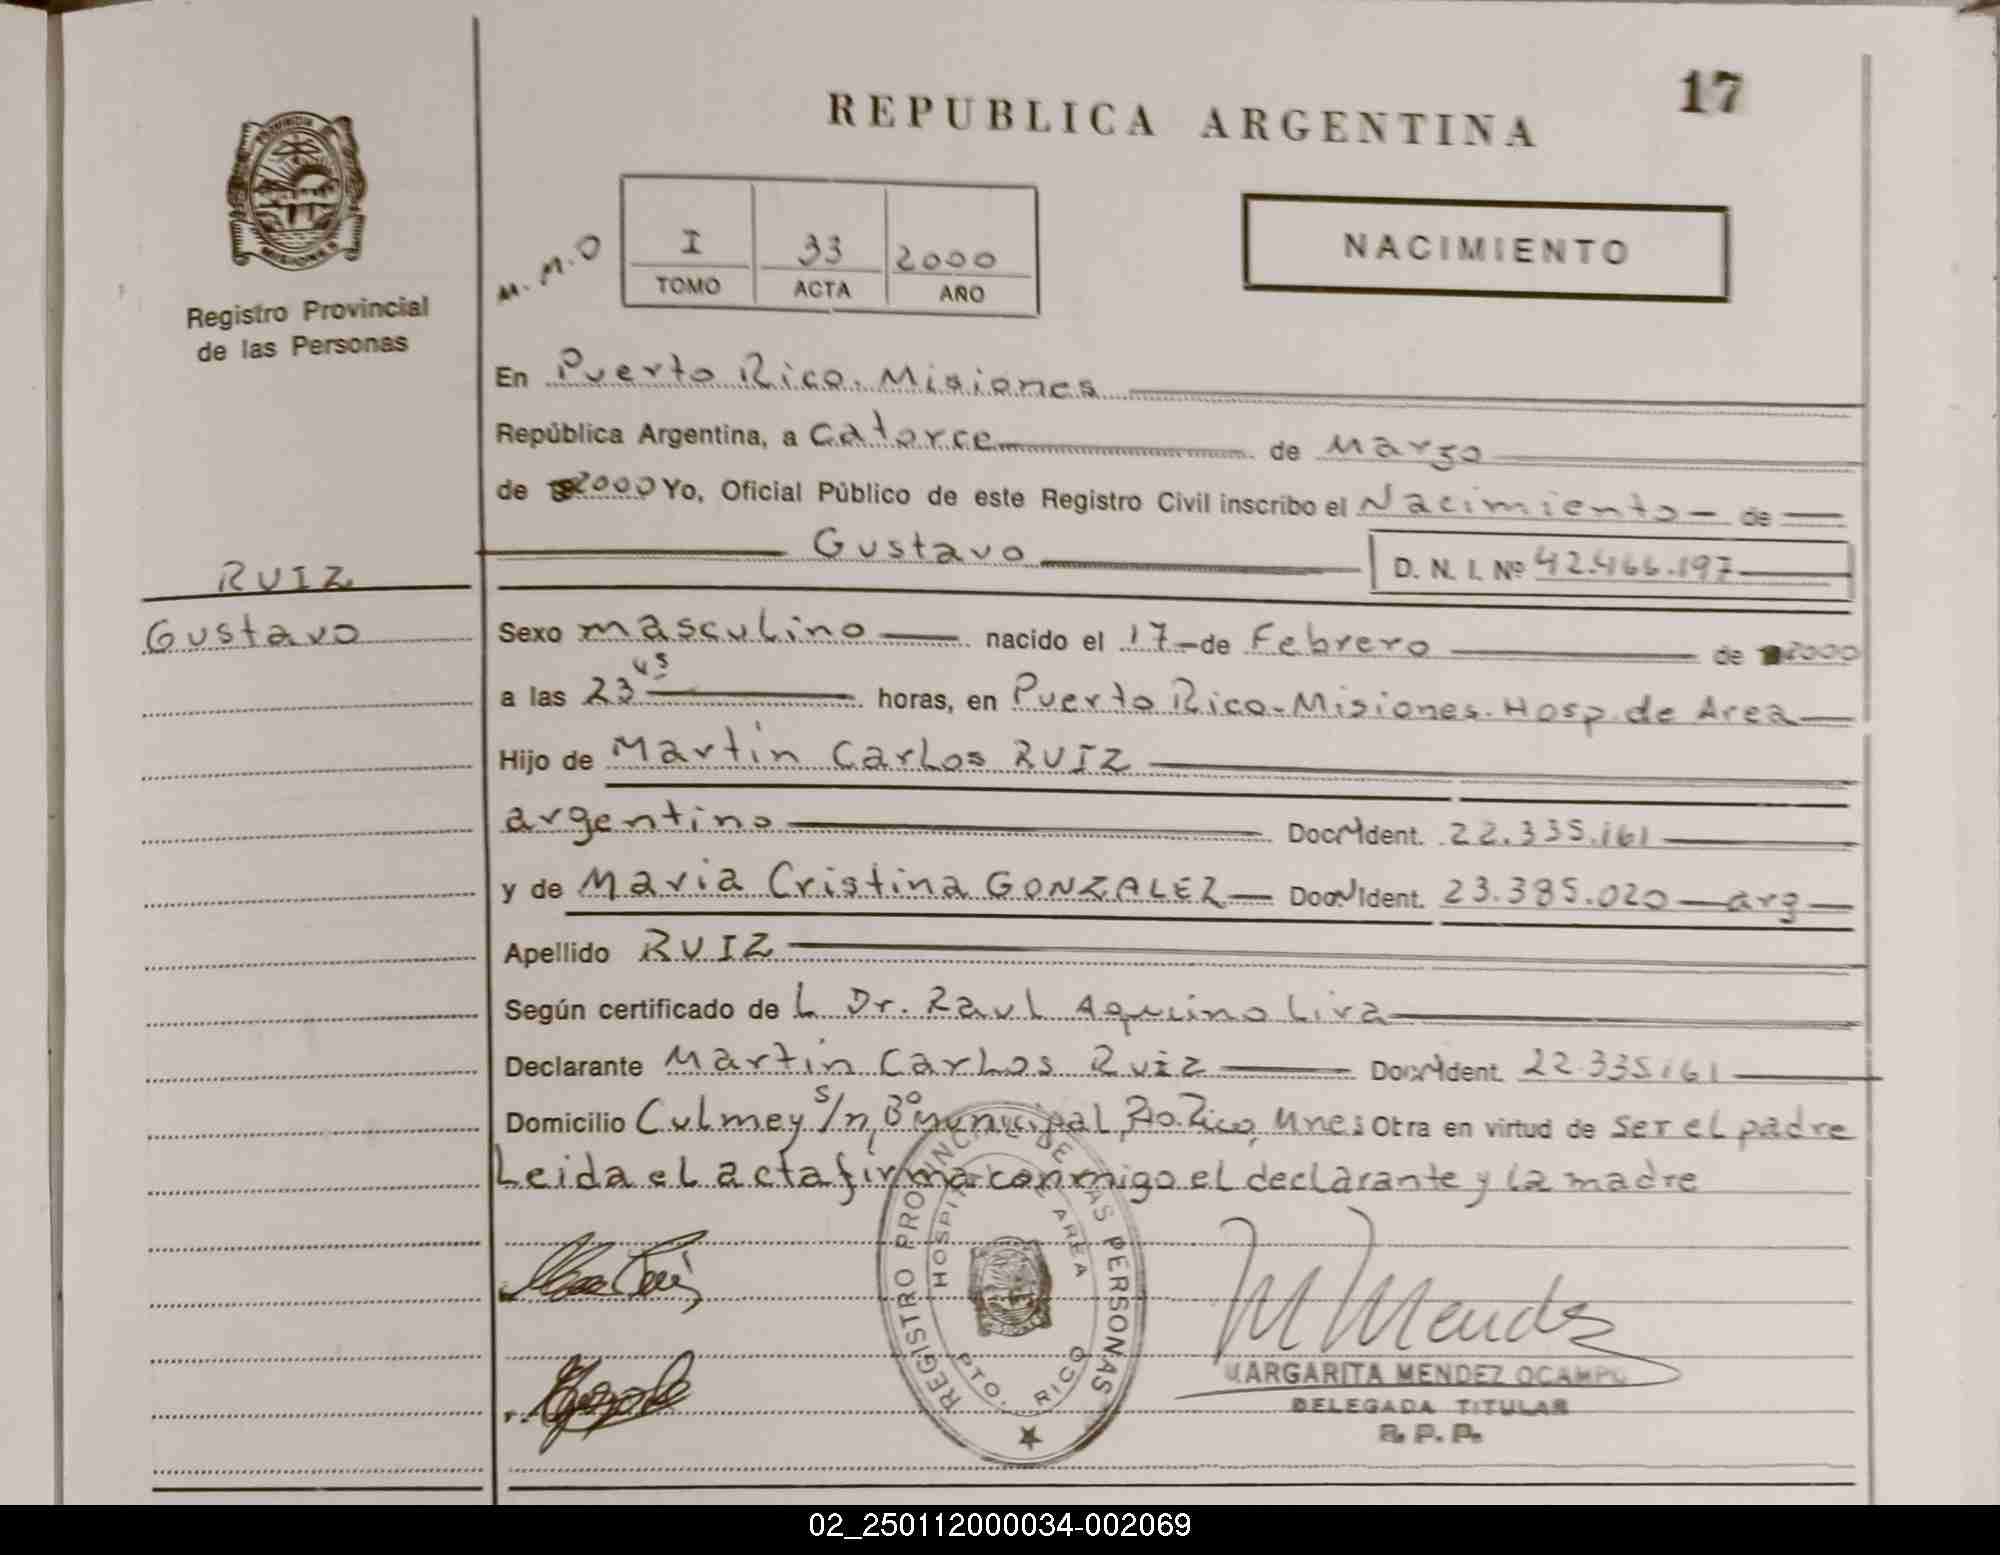 17
REPUBLICA ARGENTINA
PROVINCIA
MISIONES
Registro Provincial
de las Personas
M.M.O
I 33 2000
TOMO ACTA AÑO
NACIMIENTO
En Puerto Rico. Misiones
República Argentina, a catorce de Marzo
de 2000 Yo, Oficial Público de este Registro Civil inscribo el Nacimiento - de
Gustavo
D. N. I. Nº 42.466.197
RUIZ
Gustavo
Sexo masculino nacido el 17 - de Febrero de 2000
a las 23 45 horas, en Puerto Rico - Misiones. Hosp. de Area
Hijo de Martin Carlos RUIZ
argentino Doc. Ident. 22.335.161
y de Maria Cristina GONZALEZ Doc. Ident. 23.385.020 - arg
Apellido RUIZ
Según certificado de L Dr. Raul Aquino Lira
Declarante Martin Carlos Ruiz Doc. Ident. 22.335.161
Domicilio Culmey s/n, Bº Municipal, Pto. Rico, Mnes Otra en virtud de ser el padre
Leida el acta firma conmigo el declarante y la madre
REGISTRO PROVINCIAL DE LAS PERSONAS
HOSPITAL DE AREA
PTO. RICO
M Mendez
MARGARITA MENDEZ OCAMPO
DELEGADA TITULAR
R. P. P.
02_250112000034-002069